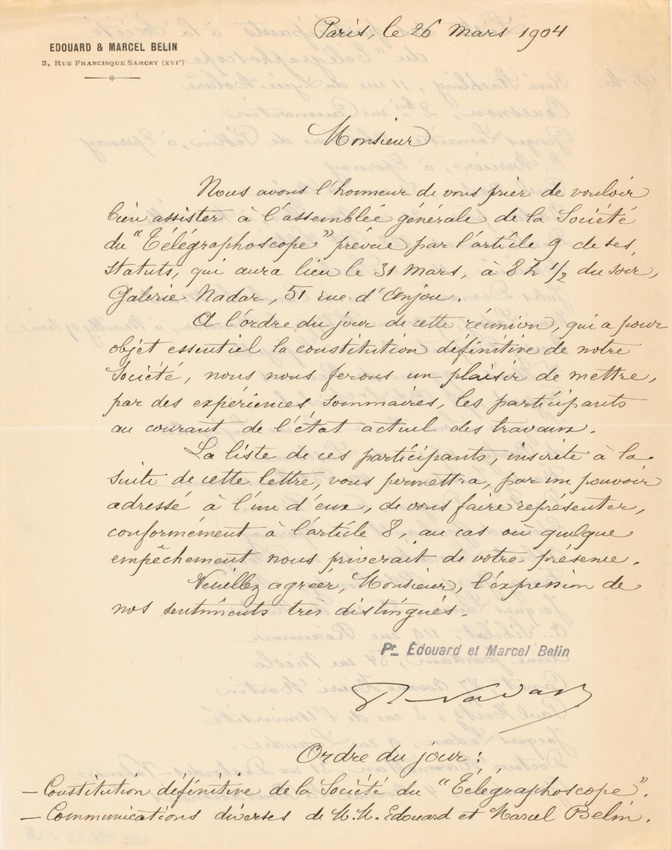 Paris, le 26 Mars 1904
EDOUARD & MARCEL BELIN
3, RUE FRANCISQUE SARCEY (XVIe)
Monsieur
Nous avons l'honneur de vous prier de vouloir
bien assister à l'assemblée générale de la Société
du "Télégraphoscope" prévue par l'article 9 de ses
statuts, qui aura lieu le 31 Mars, à 8h 1/2 du soir,
Galerie Nadar, 51 rue d'Anjou.
A l'ordre du jour de cette réunion, qui a pour
objet essentiel la constitution définitive de notre
Société, nous nous ferons un plaisir de mettre,
par des expériences sommaires, les participants
au courant de l'état actuel des travaux.
La liste de ces participants, inscrite à la
suite de cette lettre, vous permettra, par un pouvoir
adressé à l'un d'eux, de vous faire représenter,
conformément à l'article 8, au cas où quelque
empêchement nous priverait de votre présence.
Veuillez agréer, Monsieur, l'expression de
nos sentiments très distingués.
Pr. Édouard et Marcel Belin
Nadar
Ordre du jour :
— Constitution définitive de la Société du "Télégraphoscope".
— Communications diverses de M.M. Edouard et Marcel Belin.